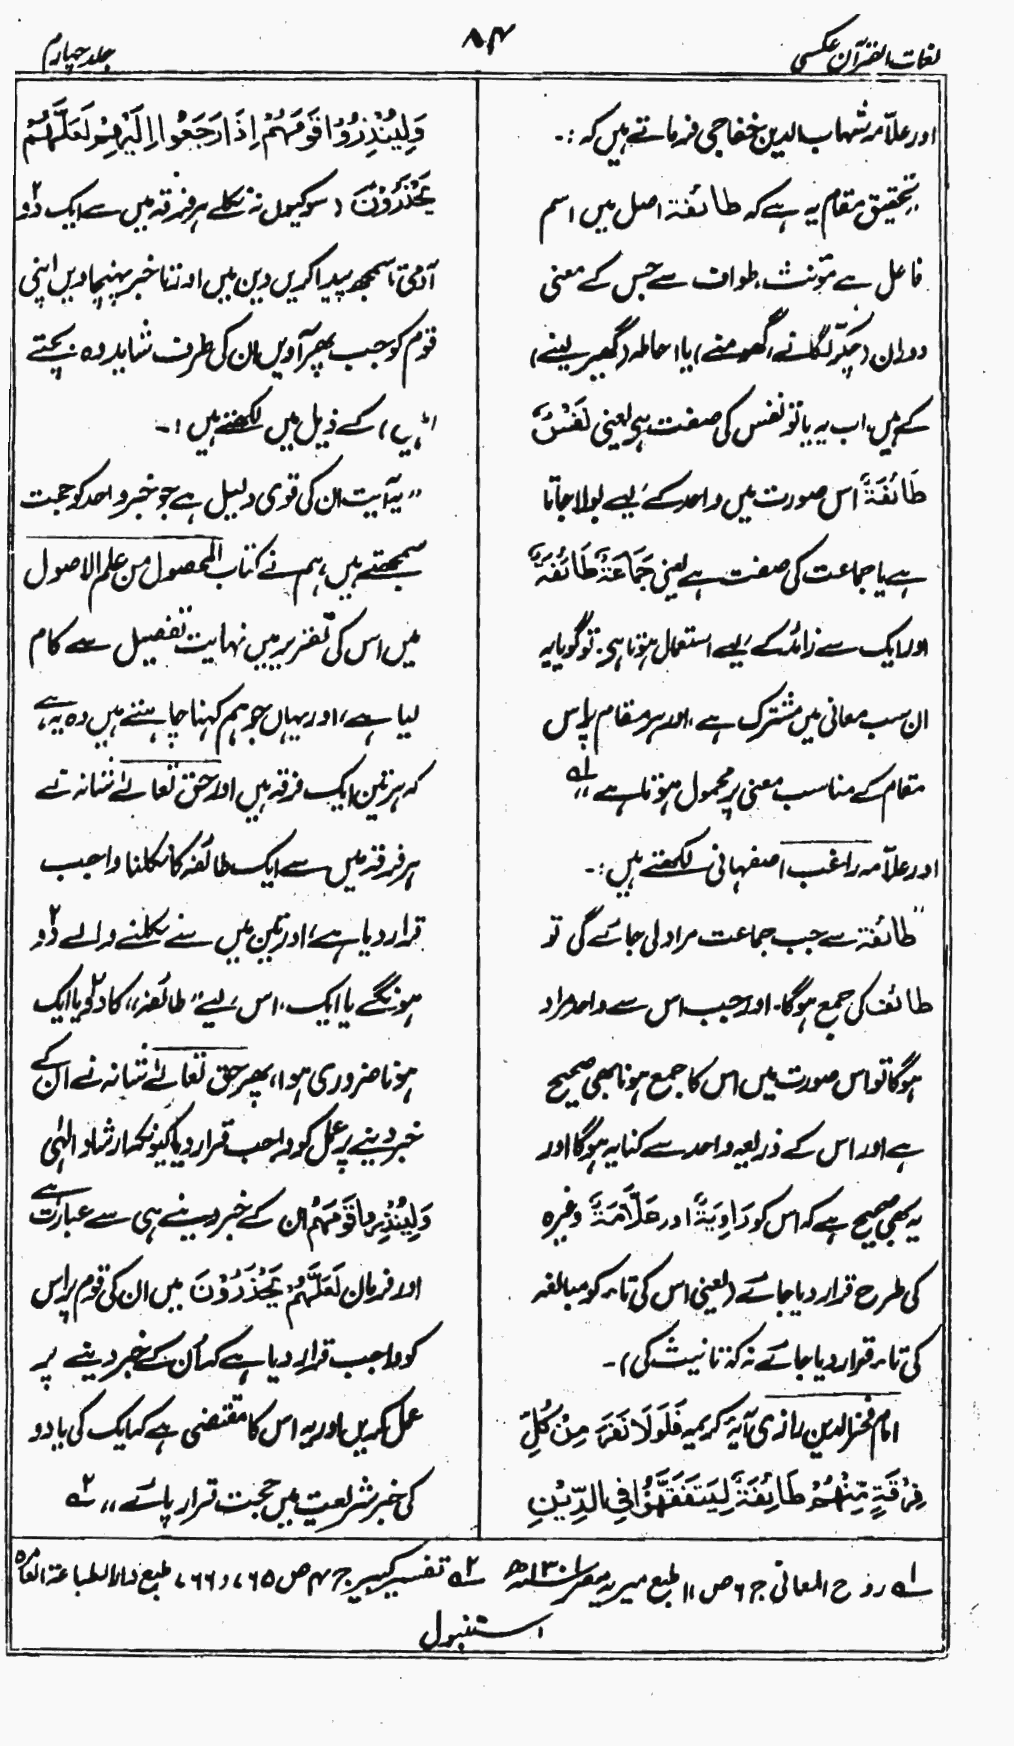 لغات القرآن عکسی
۸۴
جلد چہارم
اور علامہ شہاب الدین خفاجی فرماتے ہیں کہ :۔
تحقیق مقام یہ ہے کہ طائفۃ اصل میں اسم
فاعل ہے مؤنث، طواف سے جس کے معنی
دوران (چکر لگانے، گھومنے) یا احاطہ (گھیر لینے)
کے ہیں، اب یہ یا تو نفس کی صفت ہے یعنی نَفْسٌ
طَائِفَۃٌ اس صورت میں واحد کے لیے بولا جاتا
ہے یا جماعت کی صفت ہے یعنی جَمَاعَۃٌ طَائِفَۃٌ
اور ایک سے زائد کے لیے استعمال ہوتا ہے۔ تو گویا یہ
ان سب معانی میں مشترک ہے، اور ہر مقام پر اس
مقام کے مناسب معنی پر محمول ہوتا ہے" ۱ہ
اور علامہ راغب اصفہانی لکھتے ہیں :۔
"طائفۃ سے جب جماعت مراد لی جائے گی تو
طائف کی جمع ہوگا۔ اور جب اس سے واحد مراد
ہوگا تو اس صورت میں اس کا جمع ہونا بھی صحیح
ہے اور اس کے ذریعہ واحد سے کنایہ ہوگا اور
یہ بھی صحیح ہے کہ اس کو رَاوِیَۃٌ اور عَلَّامَۃٌ وغیرہ
کی طرح قرار دیا جائے (یعنی اس کی تاء کو مبالغہ
کی تاء قرار دیا جائے نہ کہ تانیث کی)۔
امام فخر الدین رازی آیۂ کریمہ فَلَوْلَا نَفَرَ مِنْ کُلِّ
فِرْقَۃٍ مِّنْہُمْ طَائِفَۃٌ لِّیَتَفَقَّہُوْا فِی الدِّیْنِ
وَلِیُنْذِرُوْا قَوْمَہُمْ اِذَا رَجَعُوْا اِلَیْہِمْ لَعَلَّہُمْ
یَحْذَرُوْنَ (سو کیوں نہ نکلے ہر فرقہ میں سے ایک دو
آدمی تا سمجھ پیدا کریں دین میں اور تا خبر پہنچاویں اپنی
قوم کو جب پھر آویں ان کی طرف شاید وہ بچتے
رہیں) کے ذیل میں لکھتے ہیں :۔
"یہ آیت ان کی قوی دلیل ہے جو خبر واحد کو حجت
سمجھتے ہیں، ہم نے کتاب المحصول من علم الاصول
میں اس کی تقریر میں نہایت تفصیل سے کام
لیا ہے، اور یہاں جو ہم کہنا چاہتے ہیں وہ یہ ہے
کہ ہر تین ایک فرقہ ہیں اور حق تعالےٰ شانہ نے
ہر فرقہ میں سے ایک طائفہ کا نکلنا واجب
قرار دیا ہے، اور تین میں سے نکلنے والے دو
ہونگے یا ایک، اس لیے "طائفہ" کا دو یا ایک
ہونا ضروری ہوا، پھر حق تعالےٰ شانہ نے ان کے
خبر دینے پر عمل کو واجب قرار دیا کیونکہ ارشاد الٰہی
وَلِیُنْذِرُوا قَوْمَہُمْ ان کے خبر دینے ہی سے عبارت ہے
اور فرمان لَعَلَّہُمْ یَحْذَرُوْنَ میں ان کی قوم پر اس
کو واجب قرار دیا ہے کہ اُن کے خبر دینے پر
عمل کریں اور یہ اس کا مقتضی ہے کہ ایک کی یا دو
کی خبر شریعت میں حجت قرار پائے" ۲ہ
۱ہ روح المعانی ج ۶ ص ۱۱ طبع میریہ مصر ۱۳۰۱ھ ۲ہ تفسیر کبیر ج ۴ ص ۷۶۵ و ۷۶۶ طبع دار الطباعۃ العامرہ
استنبول